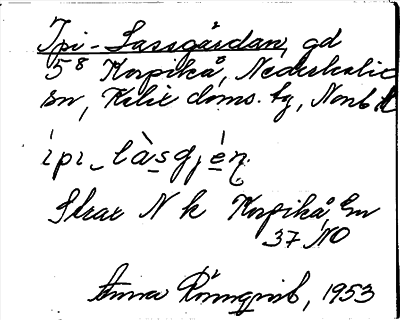 Ipi-Lassgården, gd
5⁸ Korpikå, Nederkalix
sn, Kalix doms. tg, Norrb. l
ipi_làsgjèn.
Strax N k Korpikå, sn
37 NO
Anna Rönnqvist, 1953